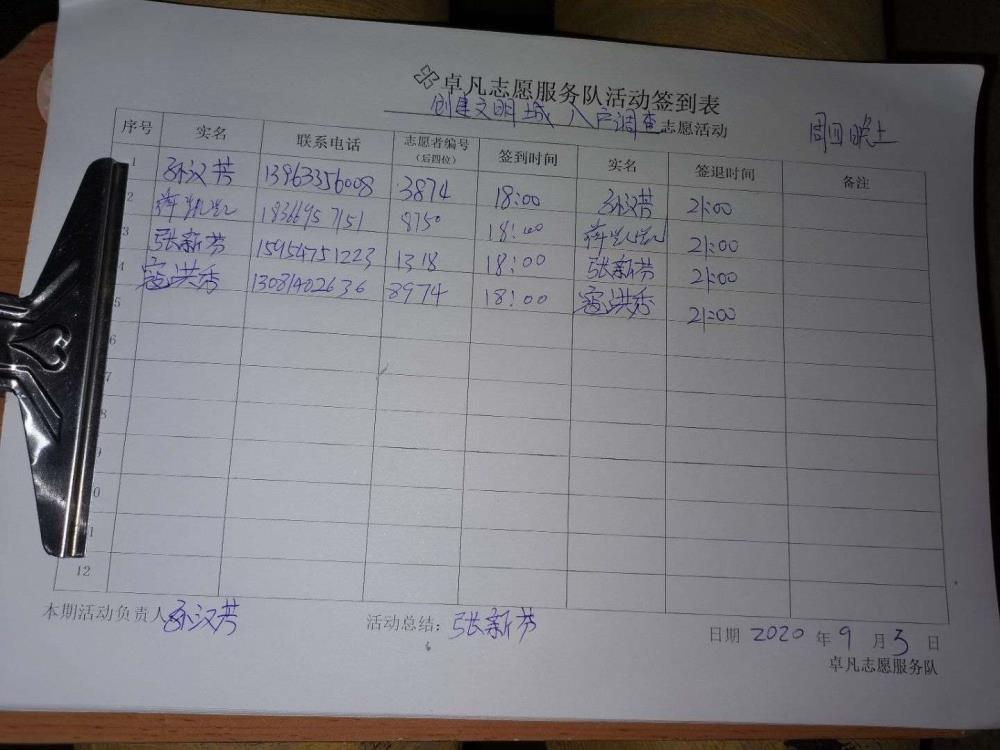 卓凡志愿服务队活动签到表
创建文明城 入户调查志愿活动 周四晚上
序号 实名 联系电话 志愿者编号（后四位） 签到时间 实名 签退时间 备注
1 孙汉芳 13963356008 3874 18:00 孙汉芳 21:00
2 薛凯凯 18366957151 8750 18:00 薛凯凯 21:00
3 张新芳 15954751223 1318 18:00 张新芳 21:00
4 寇洪秀 13081402636 8974 18:00 寇洪秀 21:00
5
6
7
8
9
10
11
12
本期活动负责人 孙汉芳 活动总结：张新芳 日期 2020 年 9 月 3 日
卓凡志愿服务队